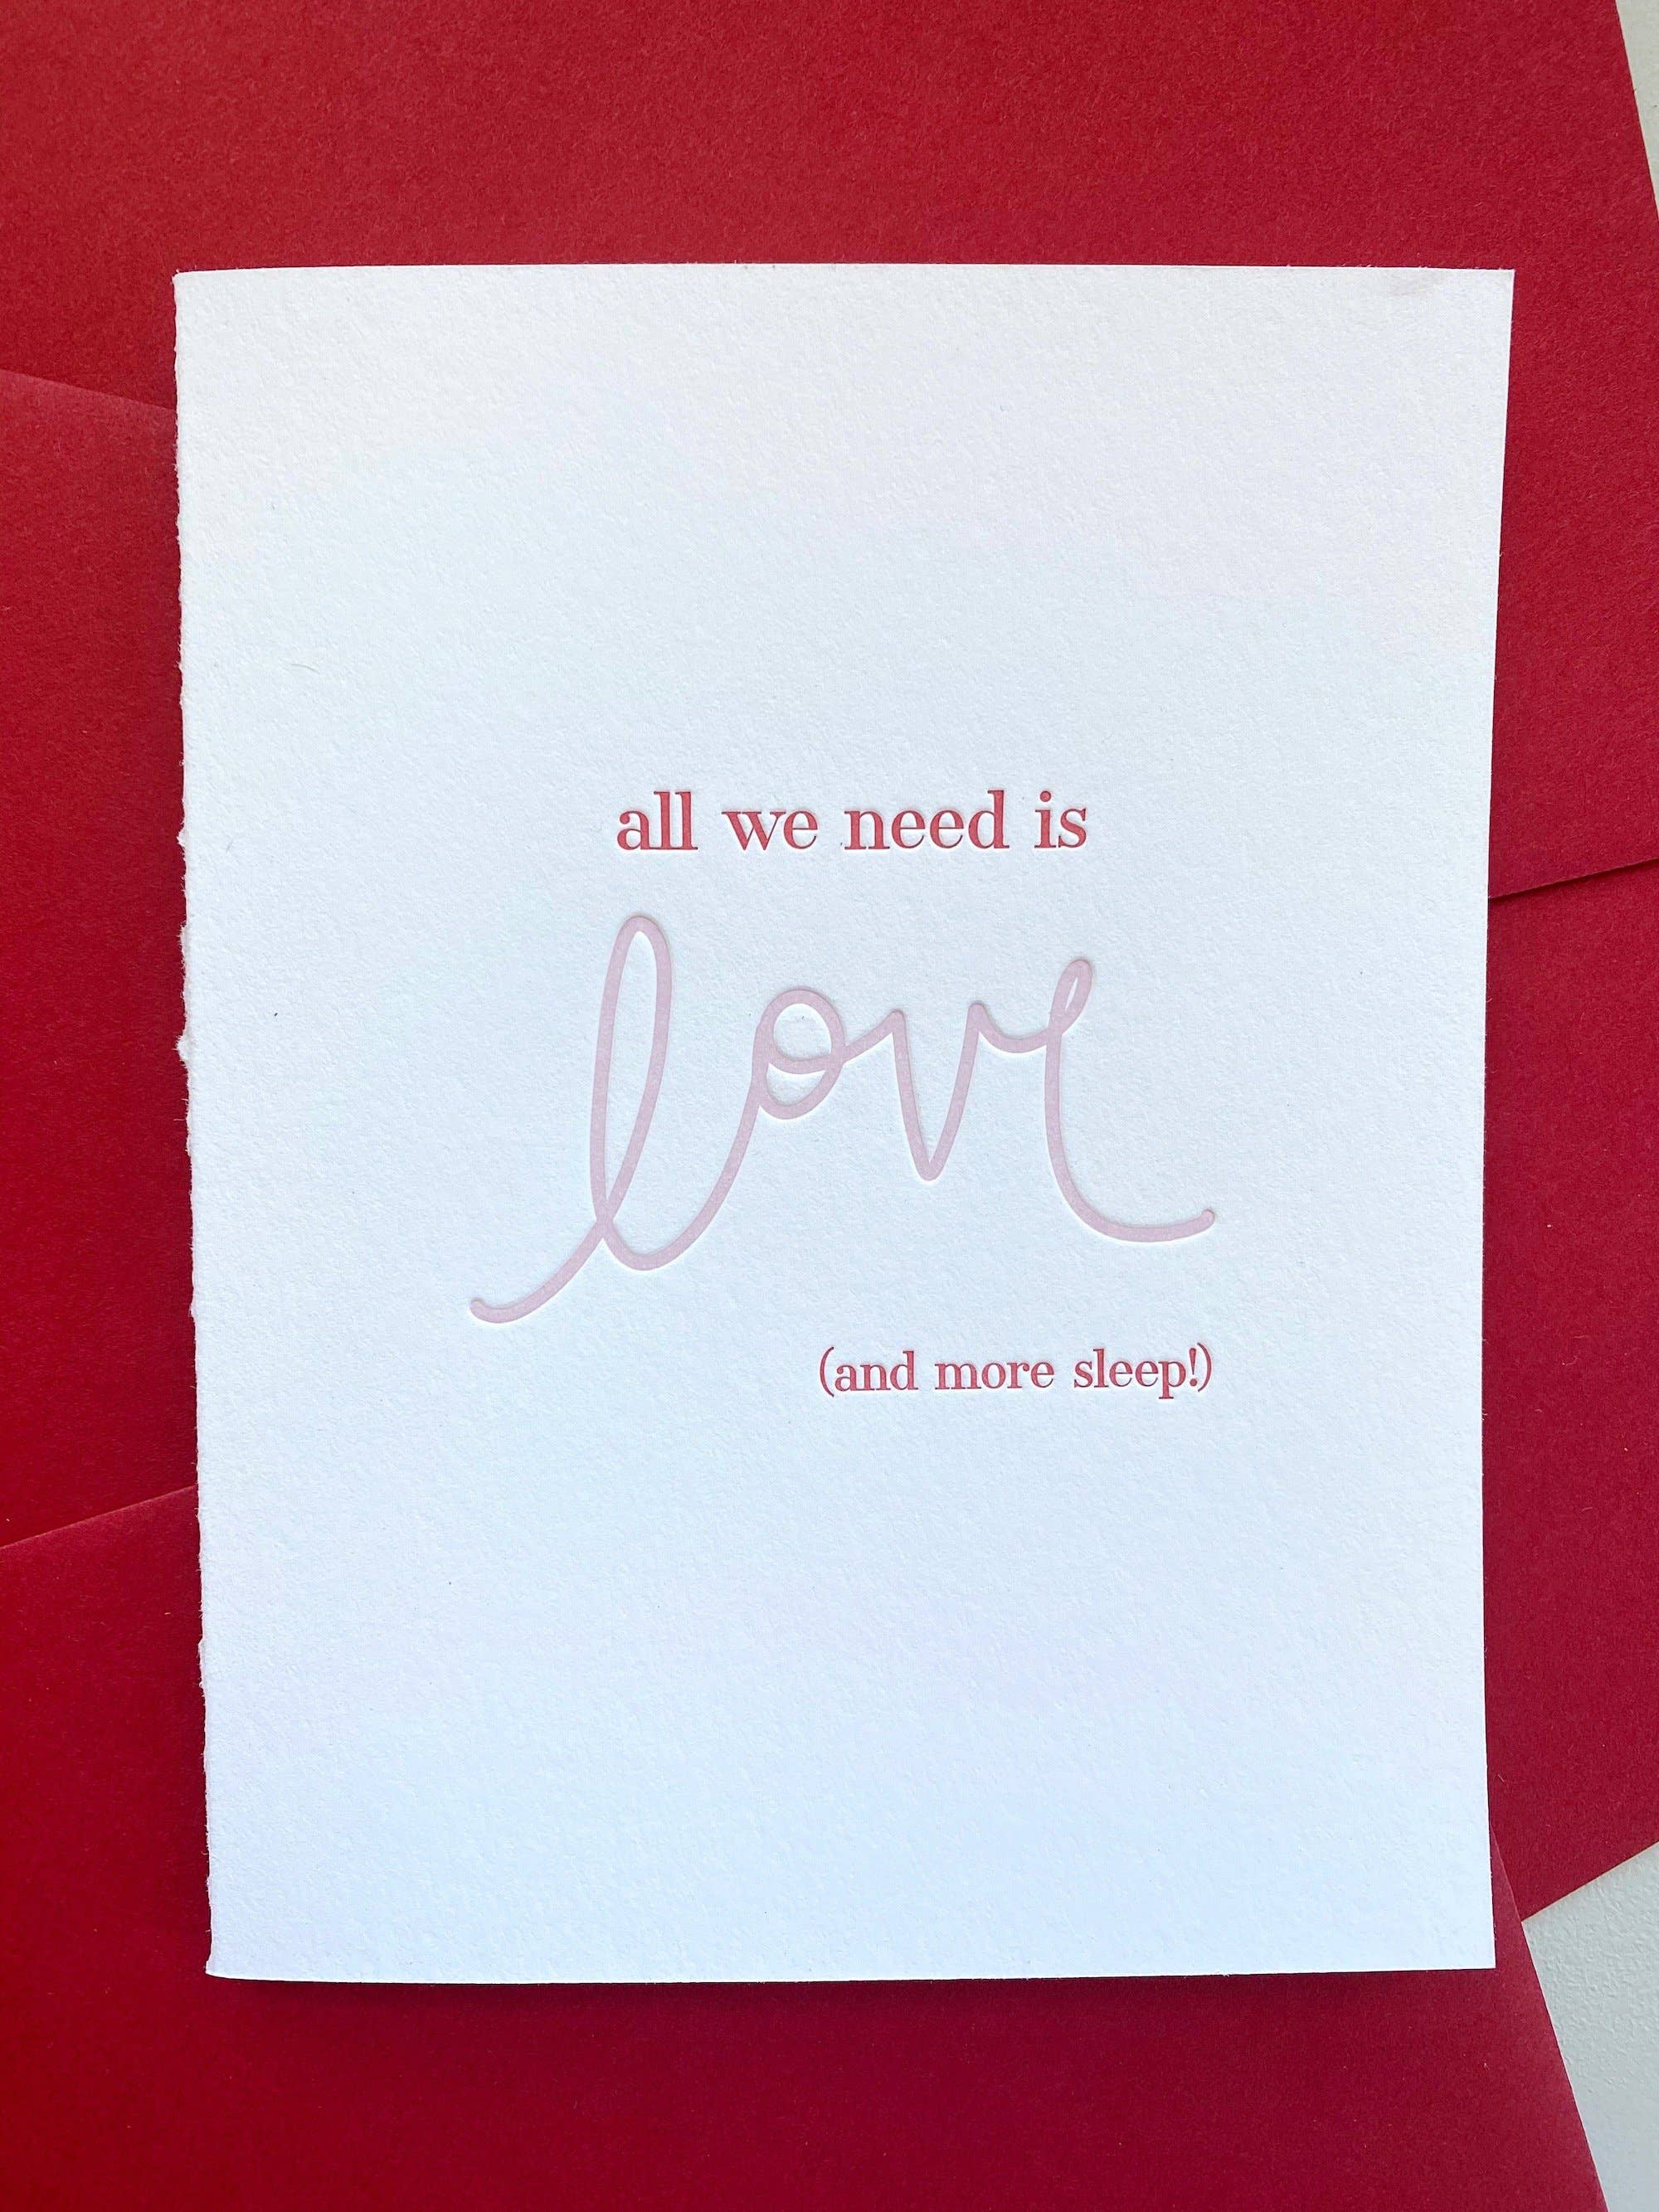 all we need is
love
(and more sleep!)